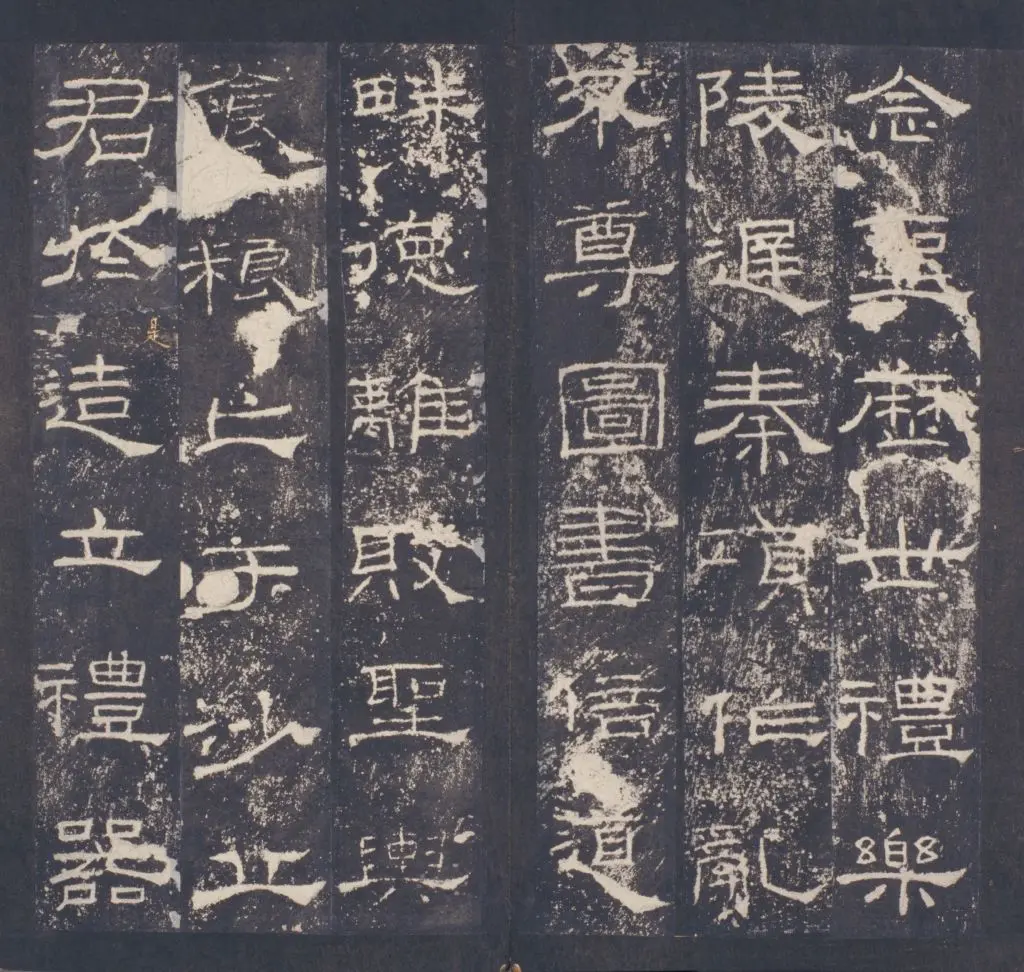 念聖歷世禮樂
陵遲秦項作亂
不尊圖書倍道
畔德離敗聖輿
食糧亡于沙丘
君於是造立禮器